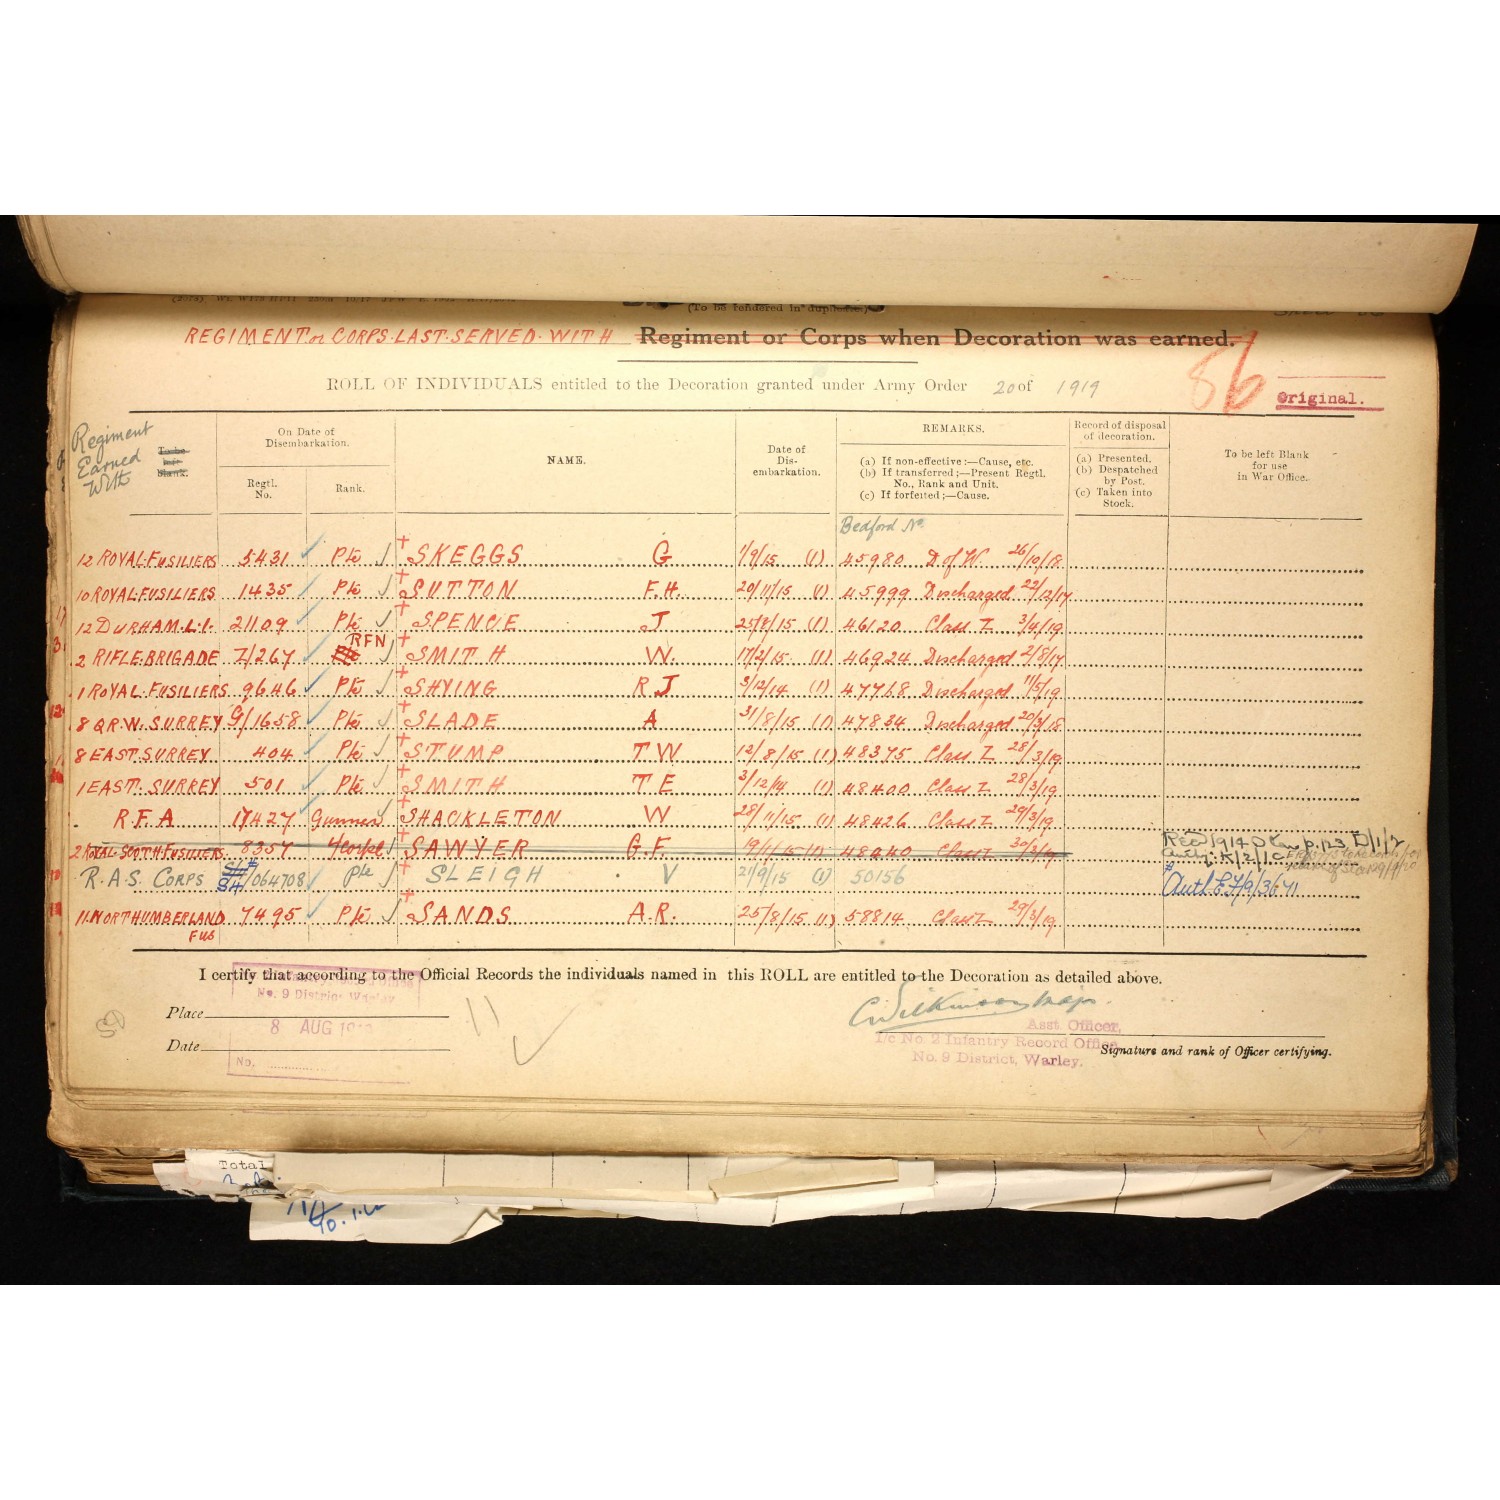 (To be rendered in duplicate.)
REGIMENT or CORPS. LAST. SERVED. WITH Regiment or Corps when Decoration was earned.
86
ROLL OF INDIVIDUALS entitled to the Decoration granted under Army Order 20 of 1919
Original.
Regiment Earned With
To be left blank.
On Date of Disembarkation.
Regtl. No.
Rank.
NAME.
Date of Dis-embarkation.
REMARKS.
(a) If non-effective:—Cause, etc.
(b) If transferred:—Present Regtl. No., Rank and Unit.
(c) If forfeited:—Cause.
Record of disposal of decoration.
(a) Presented.
(b) Despatched by Post.
(c) Taken into Stock.
To be left Blank for use in War Office.
Bedford No.
12 ROYAL. FUSILIERS 5431 Pte SKEGGS G 1/9/15 (1) 45980 D of W. 26/10/18
10 ROYAL. FUSILIERS 1435 Pte SUTTON F.H. 20/11/15 (1) 45999 Discharged 22/12/17
12 DURHAM. L.I. 21109 Pte SPENCE J 25/8/15 (1) 46120 Class Z 3/4/19
2 RIFLE. BRIGADE Z/267 RFN SMITH W. 17/2/15 (1) 46924 Discharged 2/8/17
1 ROYAL. FUSILIERS 9646 Pte SHYING R J 3/12/14 (1) 47768 Discharged 11/5/19
8 QR. W. SURREY G/1658 Pte SLADE A 31/8/15 (1) 47834 Discharged 20/3/18
8 EAST. SURREY 404 Pte STUMP T W 12/8/15 (1) 48375 Class Z 28/3/19
1 EAST. SURREY 501 Pte SMITH T E 3/12/14 (1) 48400 Class Z 28/3/19
R. F. A 17427 Gunner SHACKLETON W 28/11/15 (1) 48426 Class Z 29/3/19
2 ROYAL SCOTH. FUSILIERS. 8357 SAWYER G. F. 19/11/15 (1) 48440 Class Z 30/3/19
R. A. S. CORPS S4/064708 Pte SLEIGH V 21/9/15 (1) 50156
Auth. E.7/9/3671
11. NORTHUMBERLAND FUS 7495 Pte SANDS A. R. 25/8/15 (1) 58814 Class Z 29/3/19
I certify that according to the Official Records the individuals named in this ROLL are entitled to the Decoration as detailed above.
No. 9 District Warley
Place
8 AUG
Date
No.
11
Wilkinson Major.
Asst. Officer,
I/c No. 2 Infantry Record Office
No. 9 District, Warley.
Signature and rank of Officer certifying.
Total